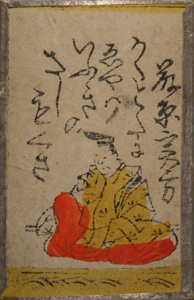 藤原実方
かくとたに
ゑやハ
いふきの
さし
も草